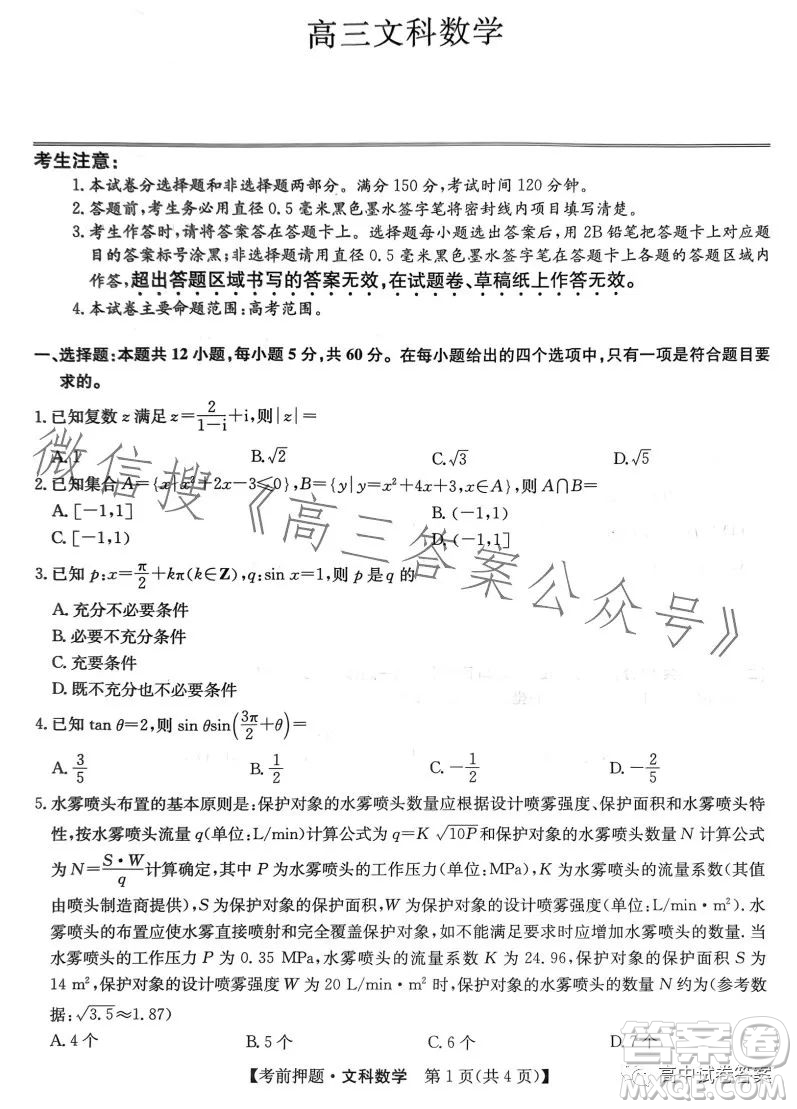 高三文科数学
考生注意:
1. 本试卷分选择题和非选择题两部分。满分 150 分,考试时间 120 分钟。
2. 答题前,考生务必用直径 0.5 毫米黑色墨水签字笔将密封线内项目填写清楚。
3. 考生作答时,请将答案答在答题卡上。选择题每小题选出答案后,用 2B 铅笔把答题卡上对应题
目的答案标号涂黑;非选择题请用直径 0.5 毫米黑色墨水签字笔在答题卡上各题的答题区域内
作答,超出答题区域书写的答案无效,在试题卷、草稿纸上作答无效。
4. 本试卷主要命题范围:高考范围。
一、选择题:本题共 12 小题,每小题 5 分,共 60 分。在每小题给出的四个选项中,只有一项是符合题目要
求的。
1. 已知复数 z 满足 z=2/(1-i)+i,则|z|=
A. 1 B. √2 C. √3 D. √5
2. 已知集合 A={x|x²+2x-3≤0},B={y|y=x²+4x+3,x∈A},则 A∩B=
A. [-1,1] B. (-1,1)
C. [-1,1) D. (-1,1]
3. 已知 p:x=π/2+kπ(k∈Z),q:sin x=1,则 p 是 q 的
A. 充分不必要条件
B. 必要不充分条件
C. 充要条件
D. 既不充分也不必要条件
4. 已知 tan θ=2,则 sin θsin(3π/2+θ)=
A. 3/5 B. 1/2 C. -1/2 D. -2/5
5. 水雾喷头布置的基本原则是:保护对象的水雾喷头数量应根据设计喷雾强度、保护面积和水雾喷头特
性,按水雾喷头流量 q(单位:L/min)计算公式为 q=K √10P和保护对象的水雾喷头数量 N 计算公式
为 N=S·W/q计算确定,其中 P 为水雾喷头的工作压力(单位:MPa),K 为水雾喷头的流量系数(其值
由喷头制造商提供),S 为保护对象的保护面积,W 为保护对象的设计喷雾强度(单位:L/min·m²). 水
雾喷头的布置应使水雾直接喷射和完全覆盖保护对象,如不能满足要求时应增加水雾喷头的数量. 当
水雾喷头的工作压力 P 为 0.35 MPa,水雾喷头的流量系数 K 为 24.96,保护对象的保护面积 S 为
14 m²,保护对象的设计喷雾强度 W 为 20 L/min·m² 时,保护对象的水雾喷头的数量 N 约为(参考数
据:√3.5≈1.87)
A. 4 个 B. 5 个 C. 6 个 D. 7 个
【考前押题·文科数学 第 1 页(共 4 页)】
微信搜《高三答案公众号》
高中试卷答案
答案圈
MXQE.COM